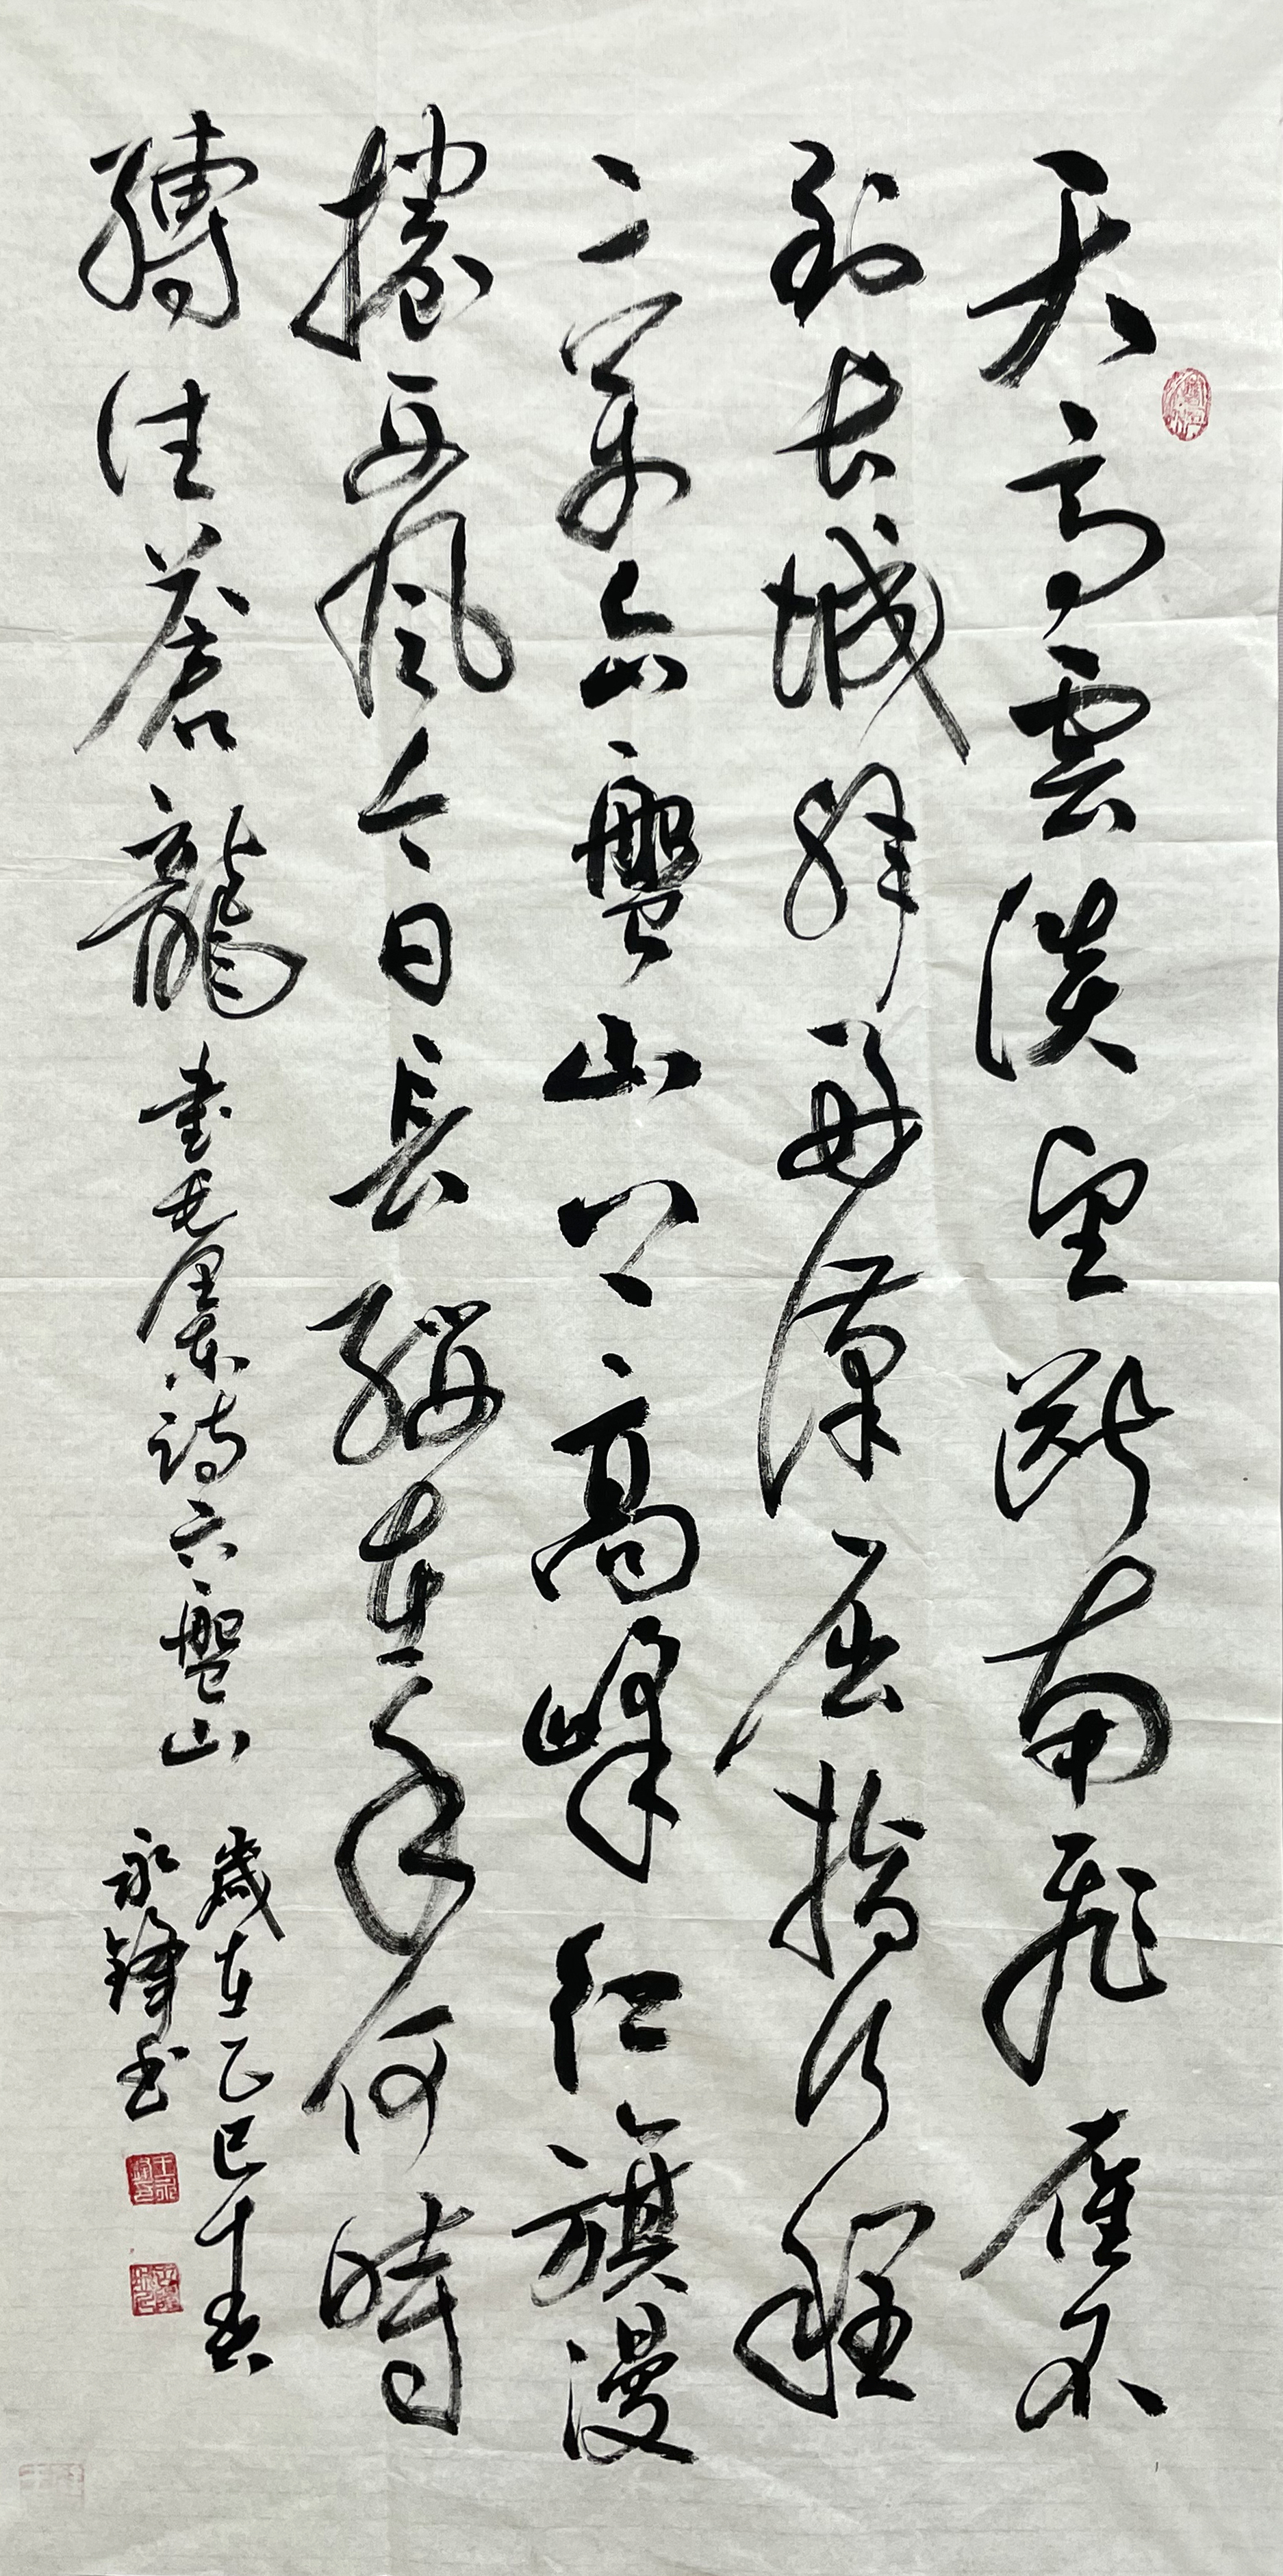 天高雲淡望斷南飛雁不
到长城非好漢屈指行程
二萬六盤山上高峰红旗漫
捲西風今日長纓在手何時
縛住蒼龍 書毛澤東詩六盤山
歲在乙巳年春
永鋒书